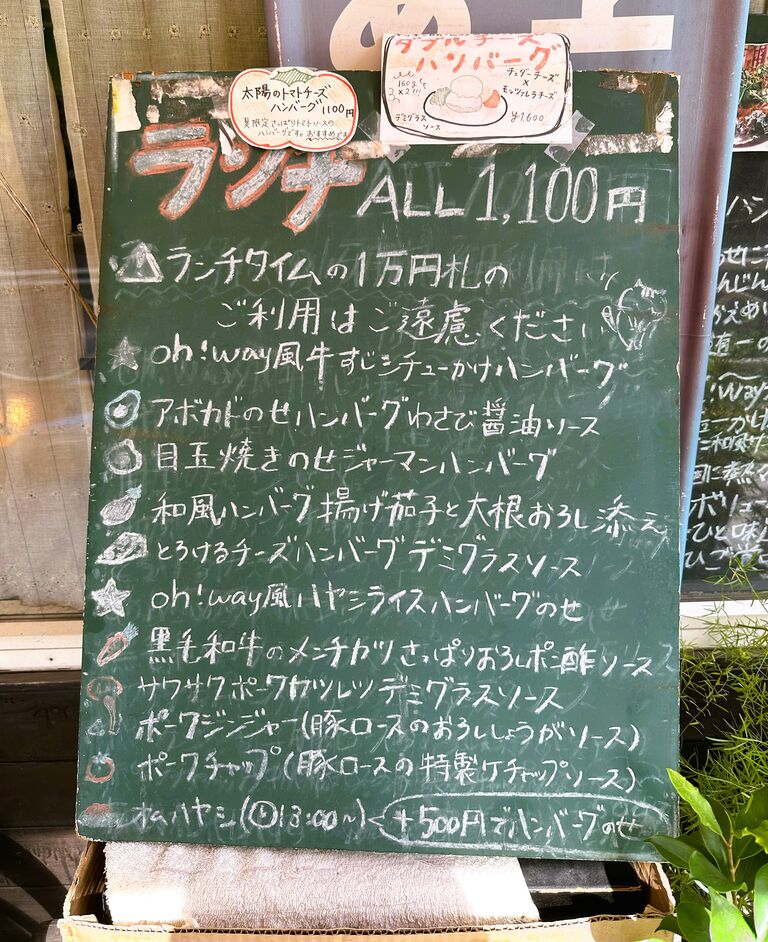 太陽のトマトチーズ
ハンバーグ1100円
夏限定さっぱりトマトソースの
ハンバーグです。おすすめです
ダブルチーズ
ハンバーグ
160g
×2!!!
チェダーチーズ
×
モッツァレラチーズ
デミグラス
ソース
¥1,600
ランチ ALL 1,100円
ランチタイムの1万円札の
ご利用はご遠慮ください
oh!way風牛すじシチューかけハンバーグ
アボカドのせハンバーグわさび醤油ソース
目玉焼きのせジャーマンハンバーグ
和風ハンバーグ揚げ茄子と大根おろし添え
とろけるチーズハンバーグデミグラスソース
oh!way風ハヤシライスハンバーグのせ
黒毛和牛のメンチカツさっぱりおろしポン酢ソース
サクサクポークカツレツデミグラスソース
ポークジンジャー(豚ロースのおろししょうがソース)
ポークチャップ(豚ロースの特製ケチャップソース)
ハヤシ(13:00〜) +500円でハンバーグのせ